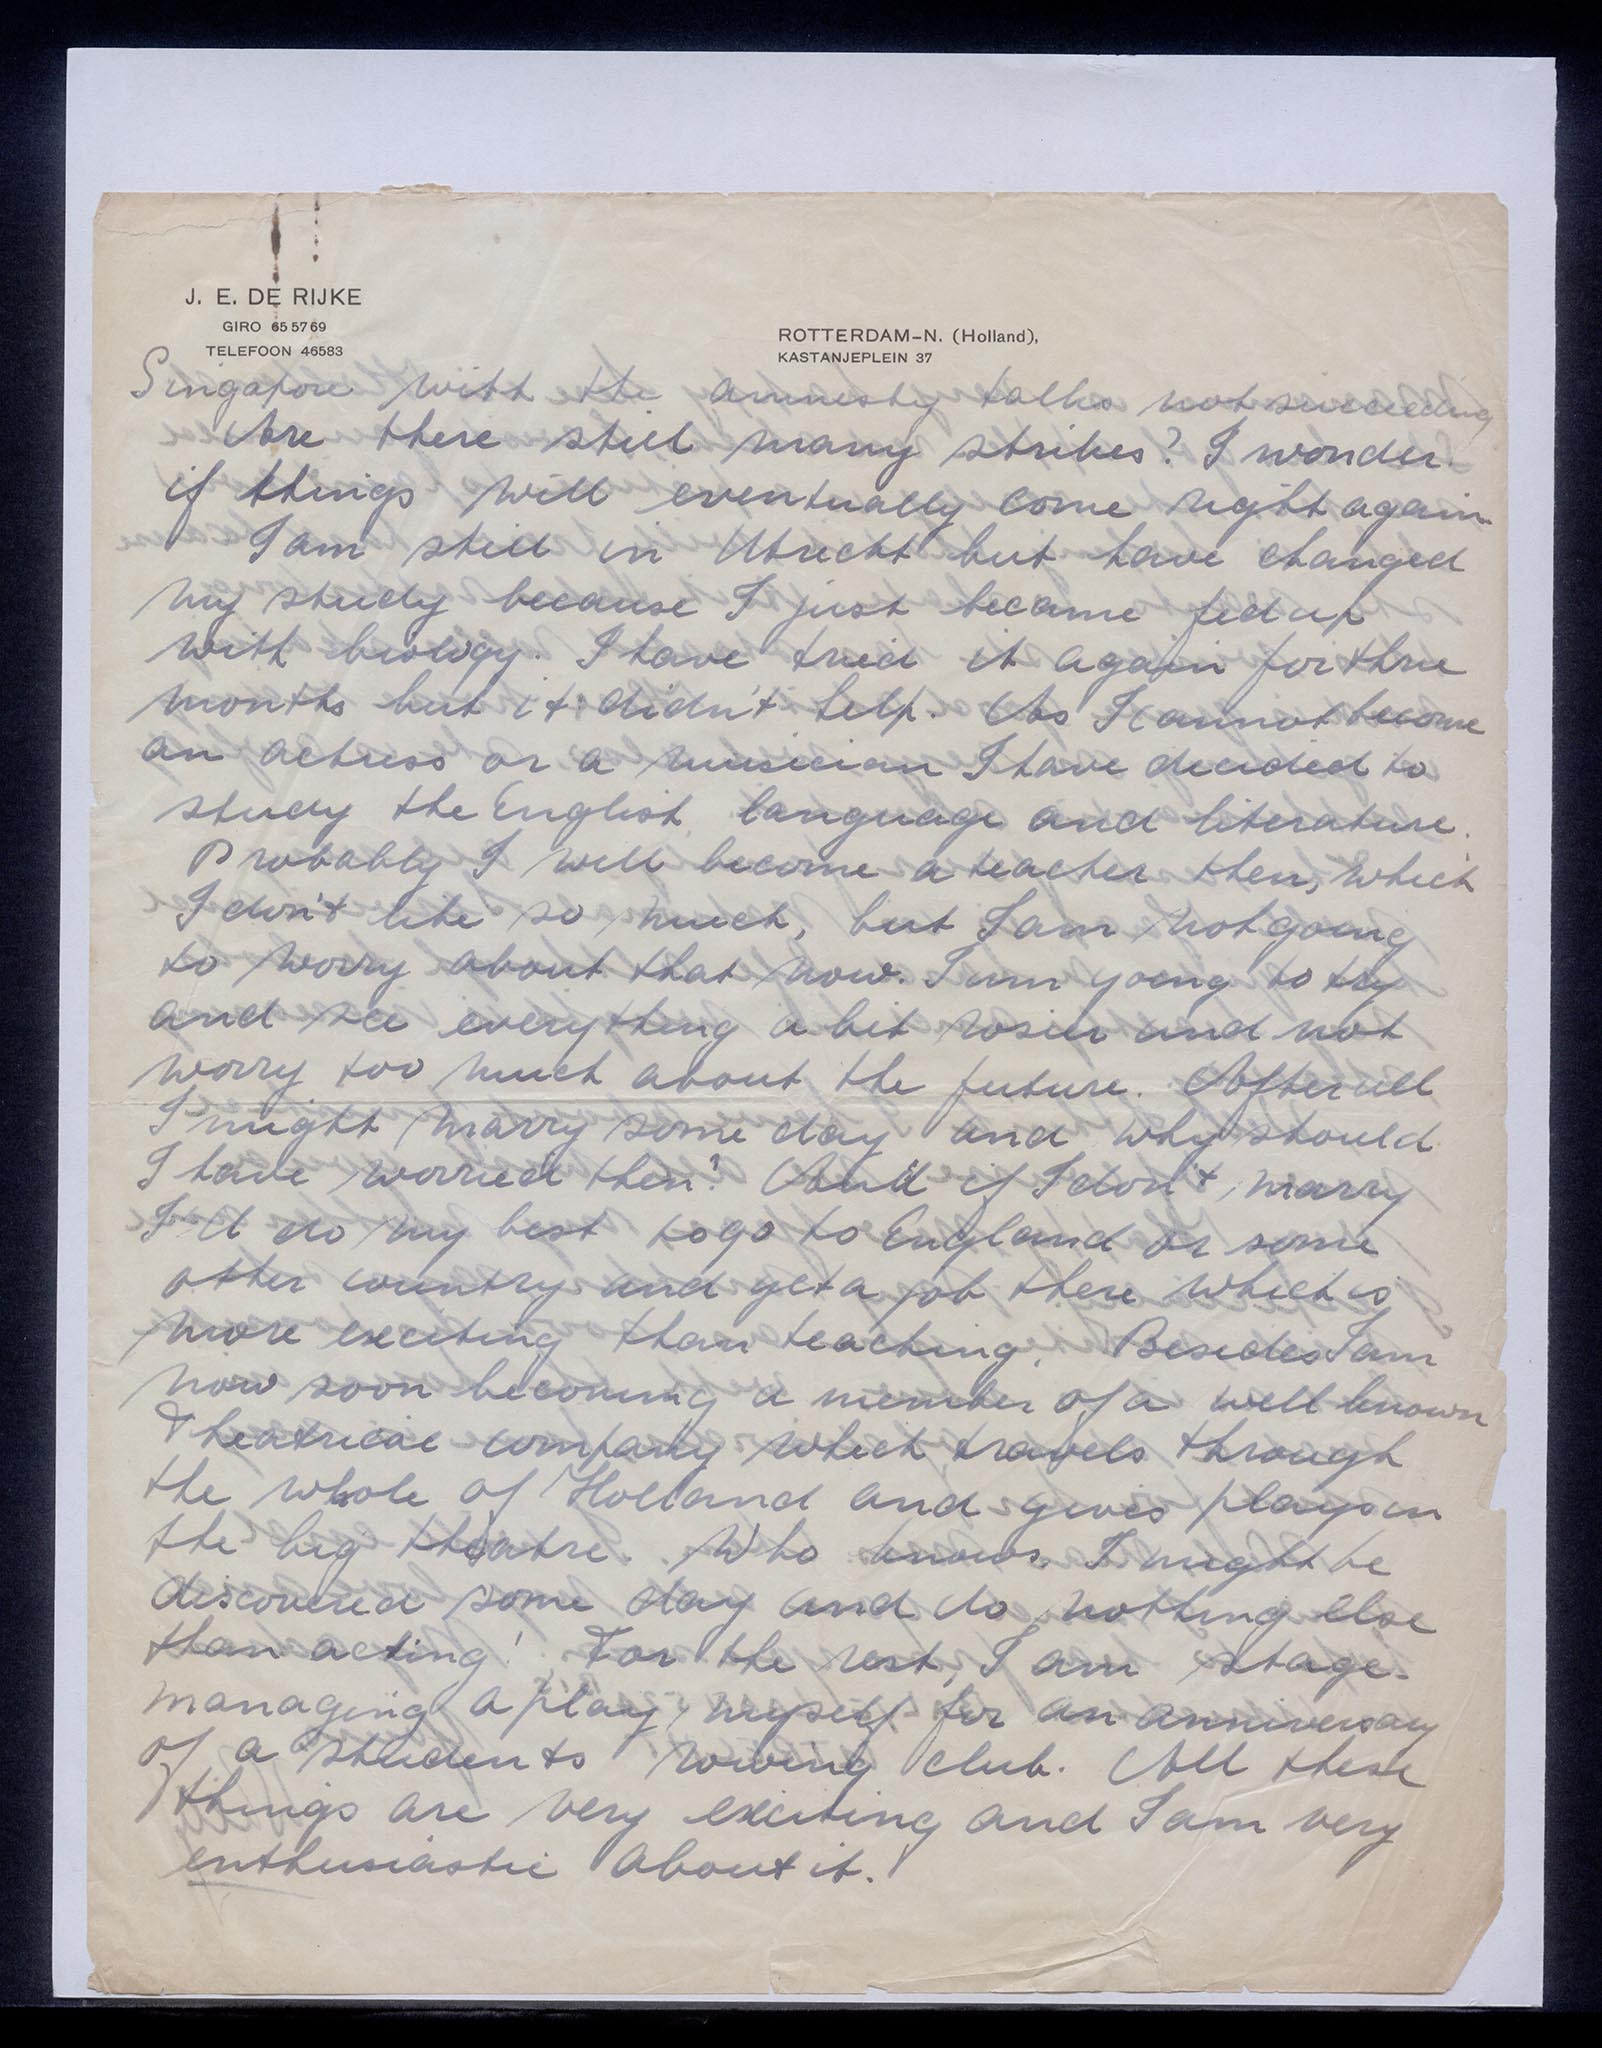 J. E. DE RIJKE
GIRO 65 57 69
TELEFOON 46583
ROTTERDAM–N. (Holland),
KASTANJEPLEIN 37
Singapore with the amnesty talks not succeeding
Are there still many strikes? I wonder
if things will eventually come right again.
I am still in Utrecht but have changed
my study because I just became fed up
with biology. I have tried it again for three
months but it didn't help. As I cannot become
an actress or a musician I have decided to
study the English language and literature.
Probably I will become a teacher then, which
I don't like so much, but I am not going
to worry about that now. I am going to try
and see everything a bit rosier and not
worry too much about the future. After all
I might marry some day and why should
I have worried then? And if I don't marry
I'll do my best to go to England or some
other country and get a job there which is
more exciting than teaching. Besides I am
now soon becoming a member of a well known
Theatrical company which travels through
the whole of Holland and gives plays in
the big theatre. Who knows I might be
discovered some day and do nothing else
than acting! For the rest, I am stage-
managing a play myself for an anniversary
of a students rowing club. All these
things are very exciting and I am very
enthusiastic about it.